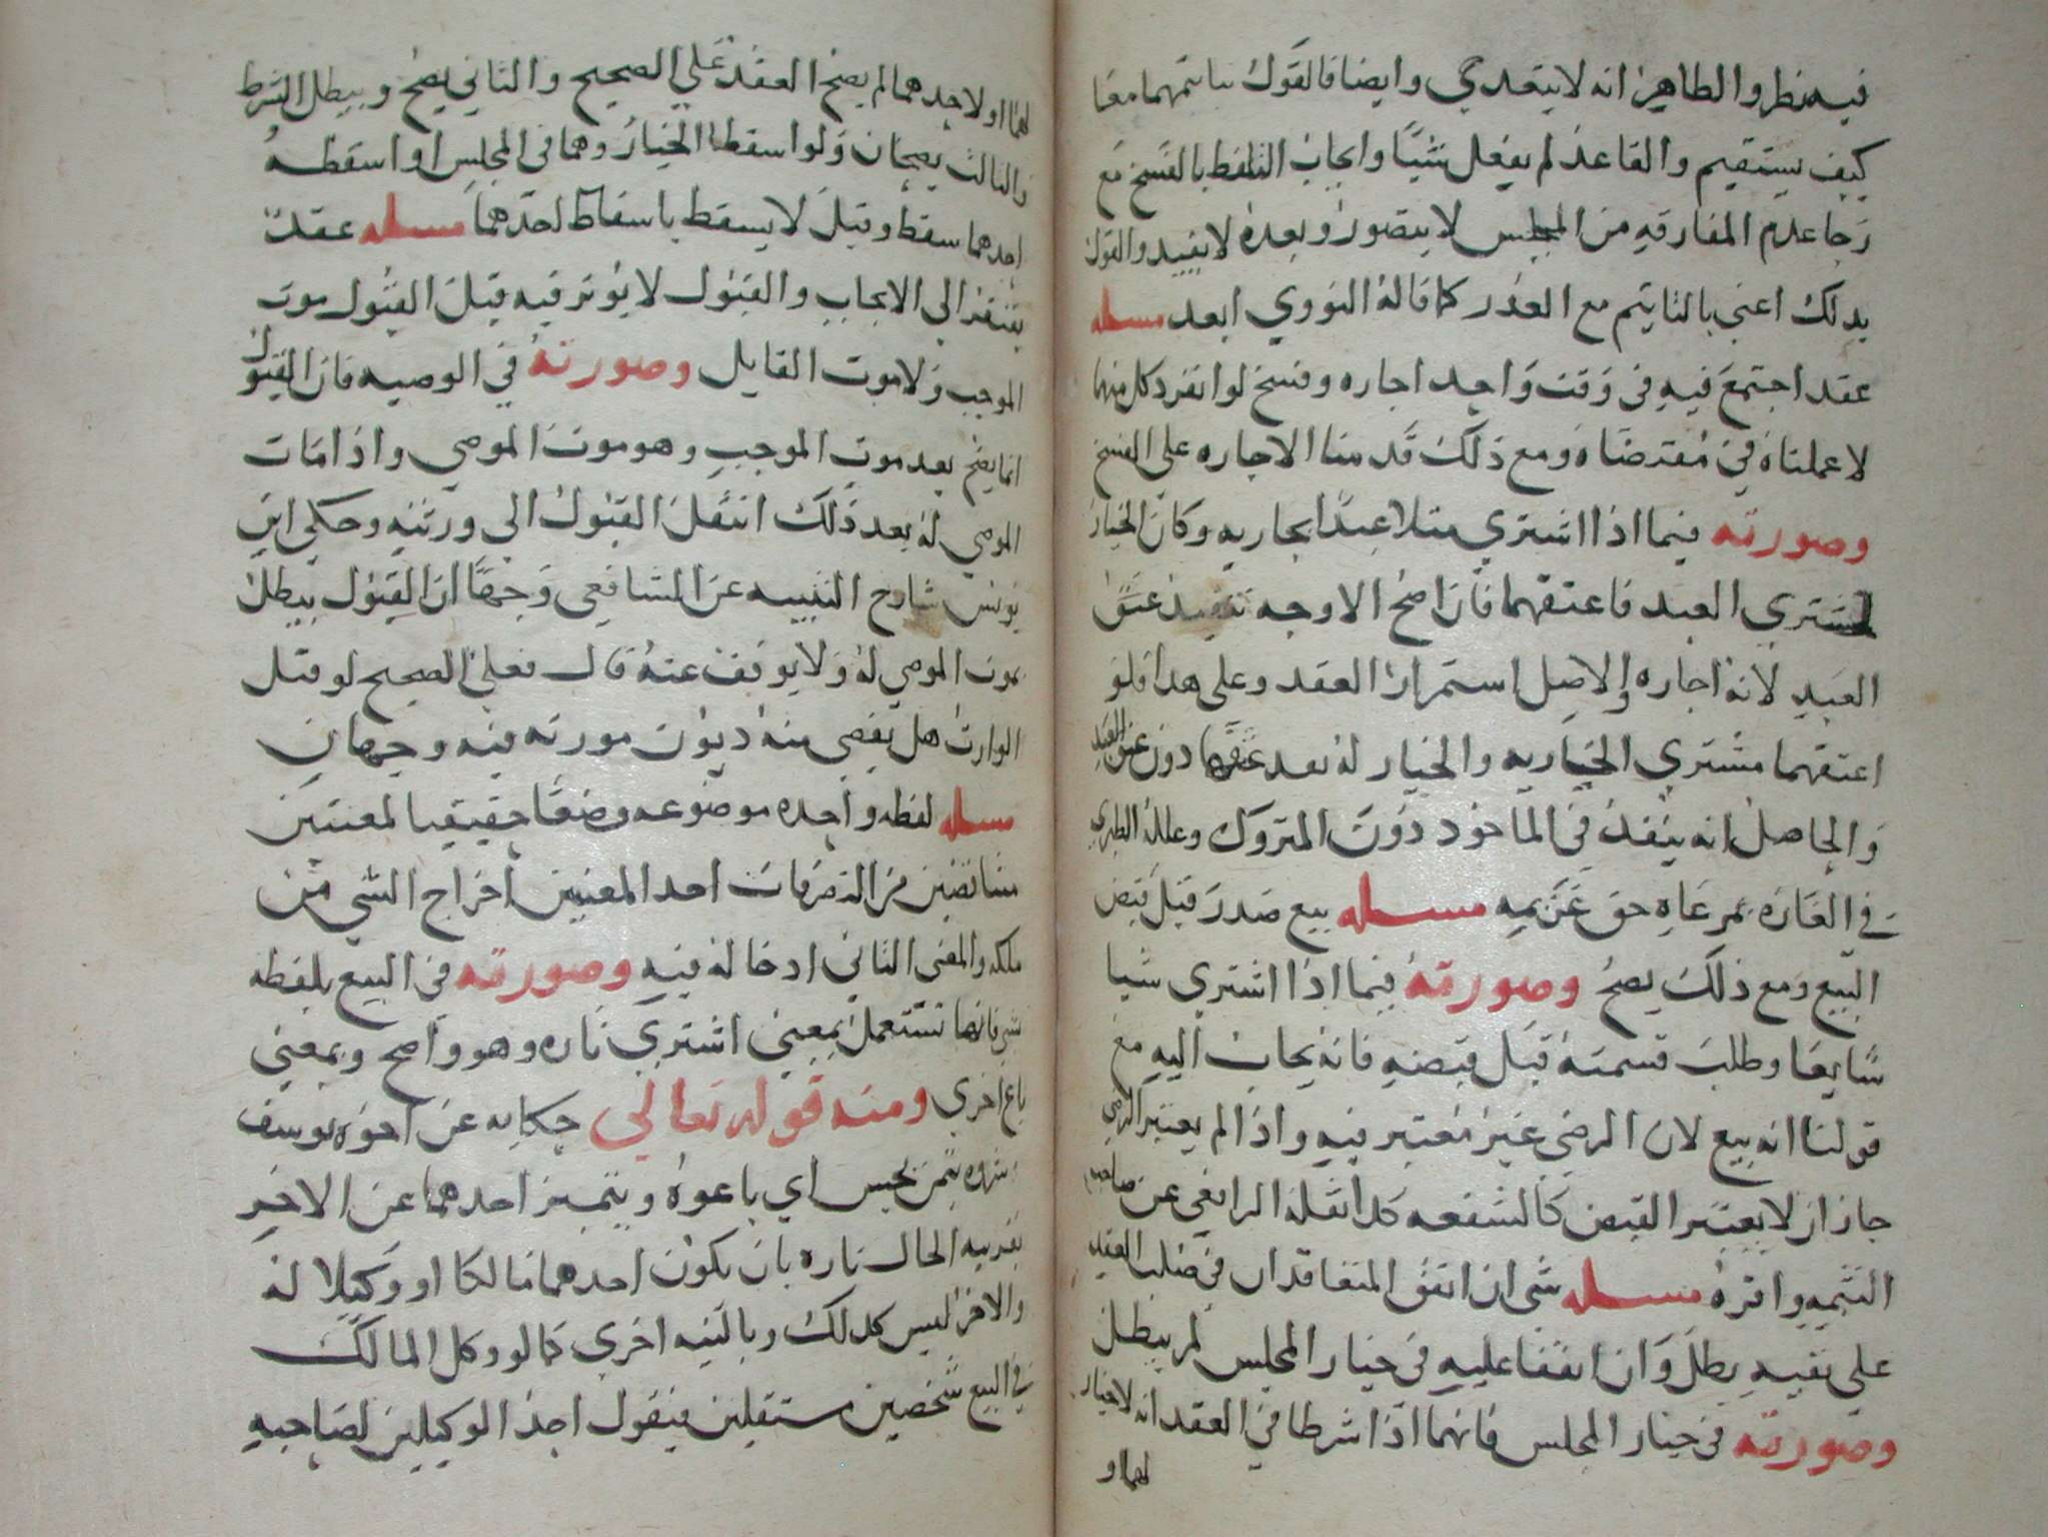 فيه نظر والظاهر انه لا يتعدي وايضا فالقول بتايتمهما معا
كيف يستقيم والقاعد لم يفعل شيًا وايجاب التلفظ بالفسخ مع
رجا عدم المفارقه من المجلس لا يتصور وبعده لا يفيد والقول
بدلك اعني بالتايتم مع العذر كما قاله النووي ابعد مسله
عقد اجتمع فيه في وقت واحد اجاره وفسخ لو انفرد كل منهما
لاعملناه في مقتضاه ومع ذلك قدمنا الاجاره على الفسخ
وصورته فيما اذا اشتري مثلا عبدًا بجاريه وكان الخيار
لمشتري العبد فاعتقهما فان اصح الاوجه تنفيذ عتق
العبد لانه اجاره والاصل استمرار العقد وعلى هدا فلو
اعتقهما مشتري الجاريه والخيار له نعد عتقها دون عتق العبد
والحاصل انه ينفذ في الماخود دون المتروك وعلله الطبري
في العاره بمرعاه حق غريمه مسله بيع صدر قبل قبض
البيع ومع ذلك يصح وصورته فيما اذا اشتري شيا
شايعا وطلب قسمته قبل قبضه فانه يجاب اليه مع
قولنا انه بيع لان الرضي غير معتبر فيه واذا لم يعتبر الرضي
جاز ان لا يعتبر القبض كالشفعه كدا نقله الرافعي عن صاحب
التتمه واقره مسله شي ان اتفق المتعاقدان في صلب العقد
على نفيه بطل وان اتفقا عليه في خيار المجلس لم يبطل
وصورته في خيار المجلس فانهما اذا شرطا في العقد انه لا خيار
لهما او
لهما او لاحدهما لم يصح العقد على الصحيح والثاني يصح ويبطل الشرط
والثالث يصحان ولو اسقطا الخيار وهما في المجلس او اسقطه
احدهما سقط وقيل لا يسقط باسقاط احدهما مسله عقد
يفتقر الي الايجاب والقبول لا يوثر فيه قبل القبول موت
الموجب ولا موت القابل وصورته في الوصيه فان القبول
انما يصح بعد موت الموجب وهو موت الموصي واذا مات
الموصي له بعد ذلك انتقل القبول الى ورثته وحكى ابن
يونس شارح التنبيه عن الشافعي وجهًا ان القبول يبطل
بموت الموصي له ولا يوقف عنه قال فعلى الصحيح لو قبل
الوارث هل يقضي منه ديون مورثه فيه وجهان
مسله لفظه واحده موضوعه وضعًا حقيقيا لمعنيين
متناقضين من التصرفات احد المعنيين اخراج الشي من
ملكه والمعنى الثاني ادخاله فيه وصورته في البيع بلفظه
شري فانها تستعمل بمعني اشتري تاره وهو واضح وبمعني
باع اخري ومنه قوله تعالي حكايه عن اخوه يوسف
وشروه بثمن بخس اي باعوه ويتميز احدهما عن الاخر
بقرينه الحال تاره بان يكون احدهما مالكا او وكيلا له
والاخر ليس كدلك وبالنيه اخري كما لو وكل المالك
في البيع شخصين مستقلين فيقول احد الوكيلين لصاحبه